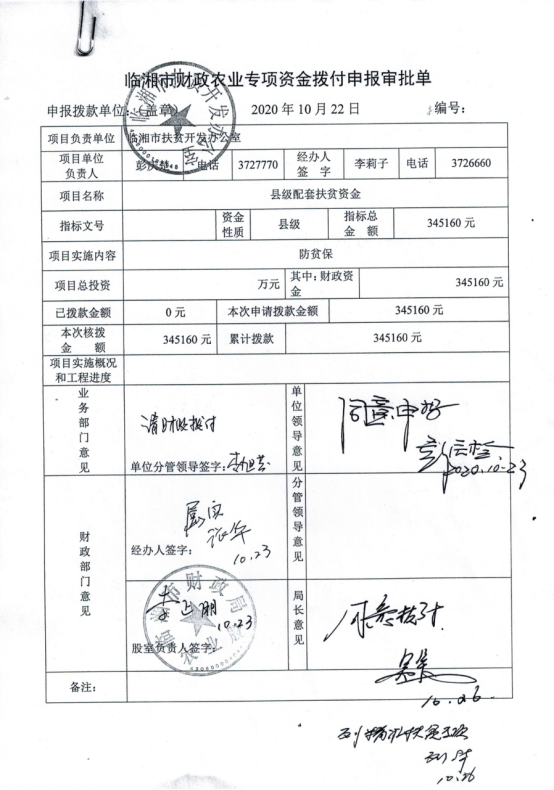 临湘市财政农业专项资金拨付申报审批单
申报拨款单位：（盖章） 2020 年 10 月 22 日 编号：
项目负责单位 临湘市扶贫开发办公室
项目单位负责人 电话 3727770 经办人签字 李莉子 电话 3726660
项目名称 县级配套扶贫资金
指标文号 资金性质 县级 指标总金额 345160 元
项目实施内容 防贫保
项目总投资 万元 其中：财政资金 345160 元
已拨款金额 0 元 本次申请拨款金额 345160 元
本次核拨金额 345160 元 累计拨款 345160 元
项目实施概况和工程进度
业务部门意见 请财政拨付 单位领导意见 同意申报
单位分管领导签字：
2020.10.23
财政部门意见 属实 分管领导意见
经办人签字： 10.23
临湘市财政局
农业股
10.23 局长意见 同意拨付
股室负责人签字：
10.26
备注：
10.26